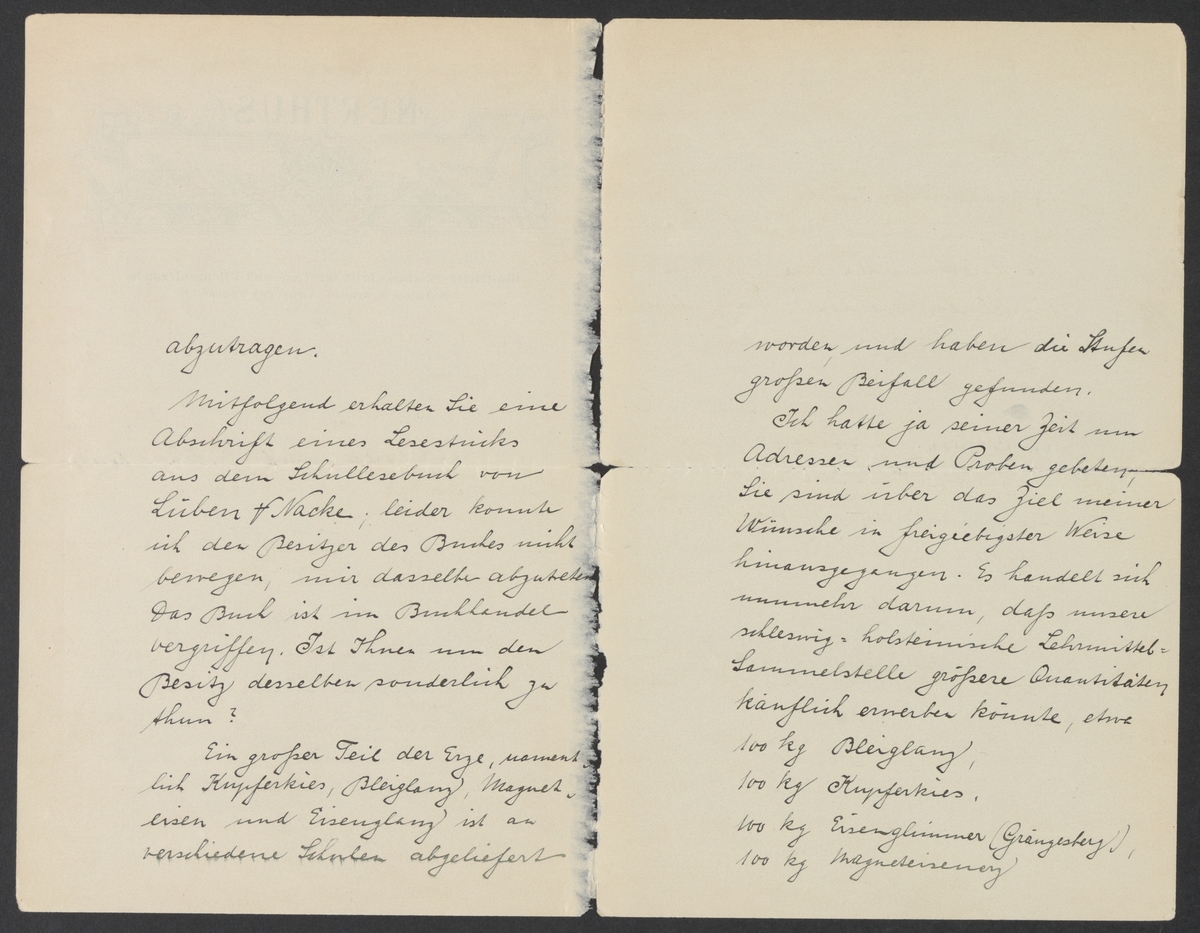 abzutragen.
Mitfolgend erhalten Sie eine
Abschrift eines Lesestücks
aus dem Schullesebuch von
Lüben & Nacke; leider konnte
ich den Besitzer des Buches nicht
bewegen, mir dasselbe abzutreten
Das Buch ist im Buchhandel
vergriffen. Ist Ihnen um den
Besitz desselben sonderlich zu
thun?
Ein großer Teil der Erze, nament-
lich Kupferkies, Bleiglanz, Magnet-
eisen und Eisenglanz ist an
verschiedene Schulen abgeliefert
worden, und haben die Stufen
großen Beifall gefunden.
Ich hatte ja seiner Zeit um
Adressen und Proben gebeten,
Sie sind über das Ziel meiner
Wünsche in freigiebigster Weise
hinausgegangen. Es handelt sich
nunmehr darum, daß unsere
schleswig=holsteinische Lehrmittel=
Sammelstelle größere Quantitäten
käuflich erwerben könnte, etwa
100 kg Bleiglanz,
100 kg Kupferkies,
100 kg Eisenglimmer (Grängesberg),
100 kg Magneteisenerz